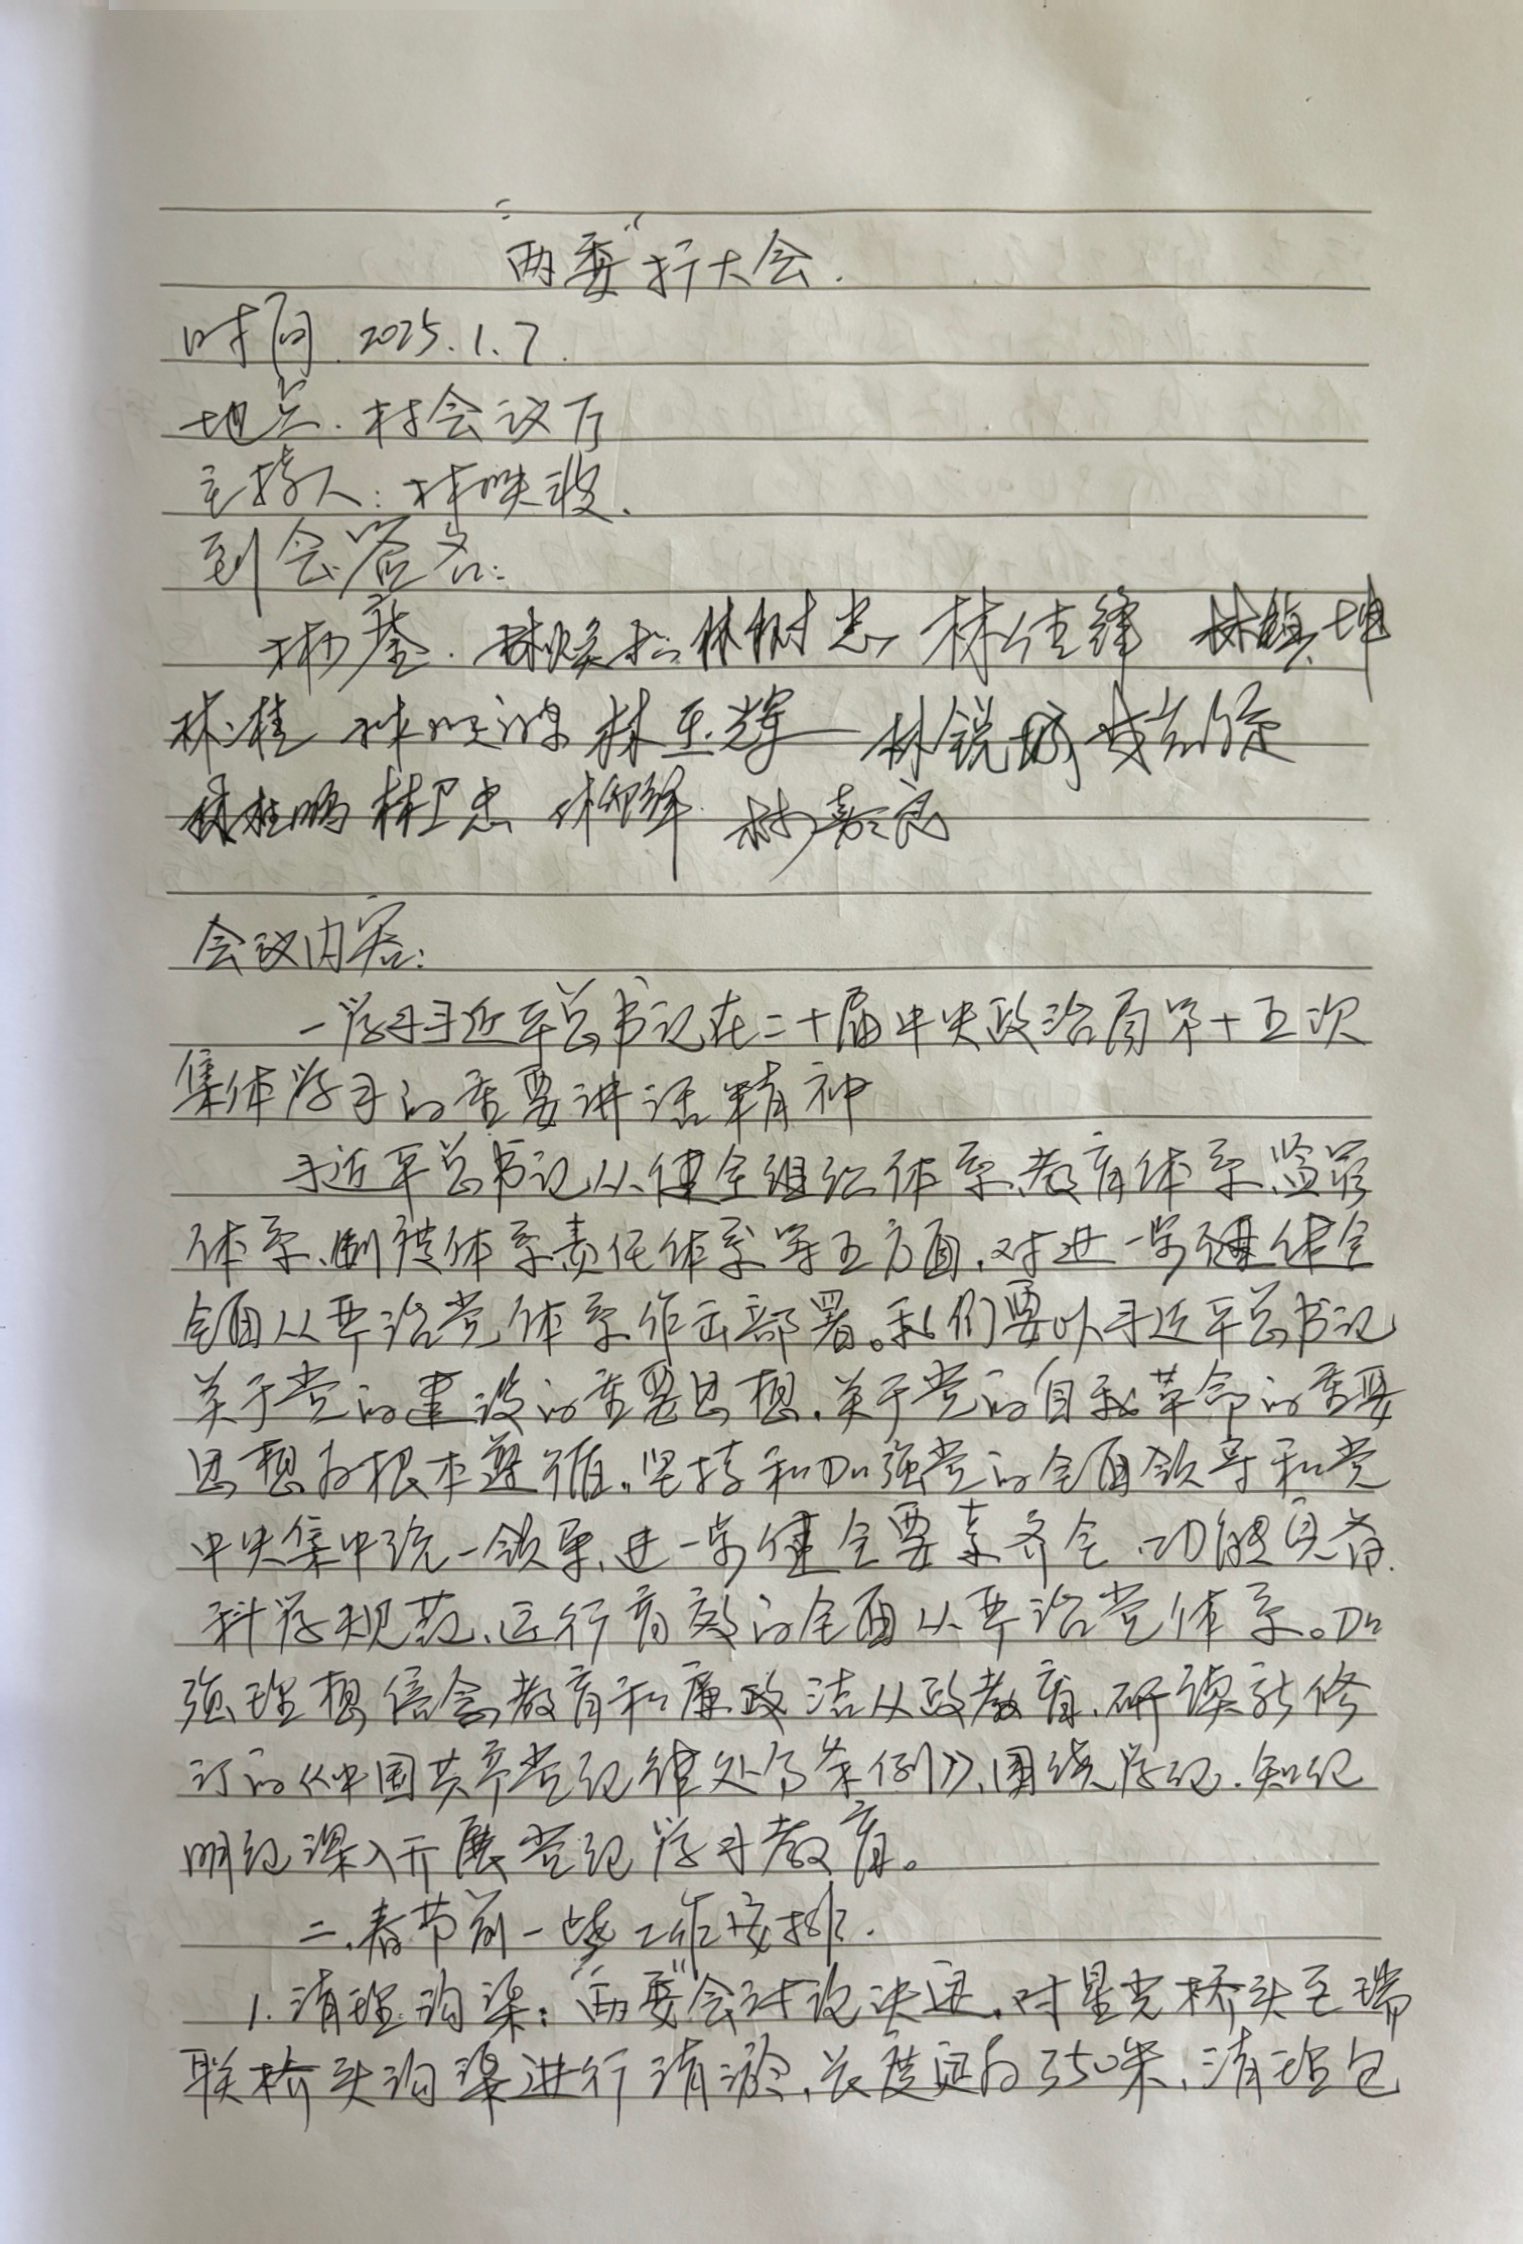 “两委”扩大会.
时间 2025.1.7.
地点.村会议厅
主持人:林映波.
到会签名:
林树忠 林佳锋 林镇坤
林桂 林映波 林亚辉 林锐
林桂鹏 林卫忠 林嘉亮
会议内容:
一学习习近平总书记在二十届中央政治局第十五次
集体学习的重要讲话精神
习近平总书记从健全组织体系、教育体系、监管
体系、制度体系责任体系等五方面,对进一步健体全
全面从严治党体系作出部署。我们要以习近平总书记
关于党的建设的重要思想、关于党的自我革命的重要
思想为根本遵循,坚持和加强党的全面领导和党
中央集中统一领导,进一步健全要素齐全、功能完备、
科学规范、运行有效的全面从严治党体系。加
强理想信念教育和廉政洁从政教育,研读新修
订的《中国共产党纪律处分条例》,围绕学纪、知纪
明纪深入开展党纪学习教育。
二、春节前一些工作安排.
1.清理沟渠:“两委”会讨论决定,对星光桥头至瑞
联桥头沟渠进行清淤,长度约为350米,清理包